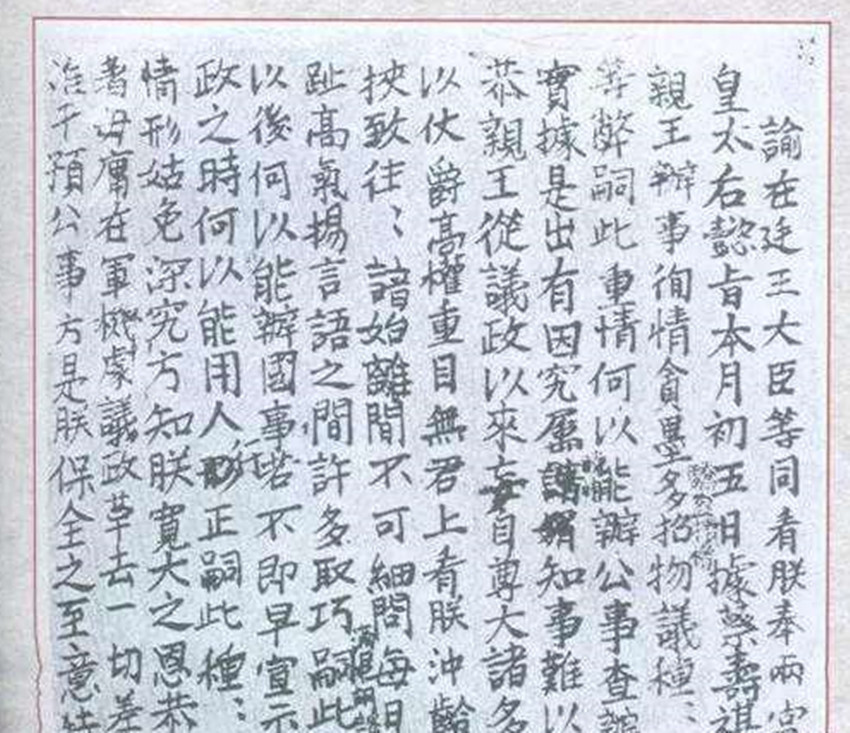 諭在廷三大臣等同看朕奉兩宮
皇太后懿旨本月初五日據蔡壽祺
親王辦事徇情貪墨多招物議種〻
等弊嗣此重情何以能辦公事查辦
實據是出有因究屬知事難以
恭親王從議政以來妄自尊大諸多
以伏爵高權重目無君上看朕沖齡
挾致往〻諳始離間不可細問每日
趾高氣揚言語之間許多取巧嗣此
以後何以能辦國事若不即早宣示
政之時何以能用人行正嗣此種〻
情形姑免深究方知朕寬大之恩恭
著毋庸在軍機處議政革去一切差
治干預公事方是朕保全之至意特